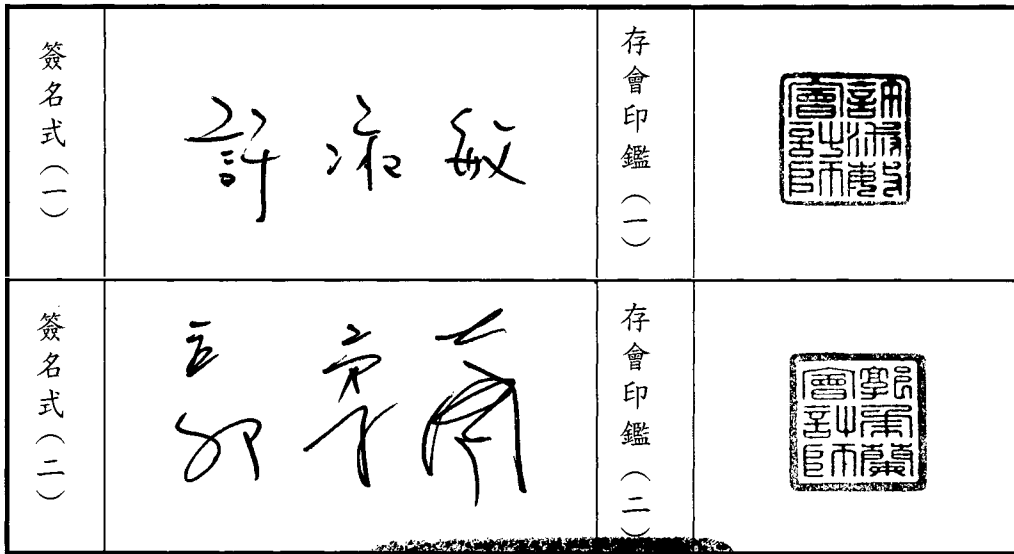 簽名式(一)
許淑敏
存會印鑑(一)
許淑敏
會計師
簽名式(二)
郭 蘭
存會印鑑(二)
郭 蘭
會計師